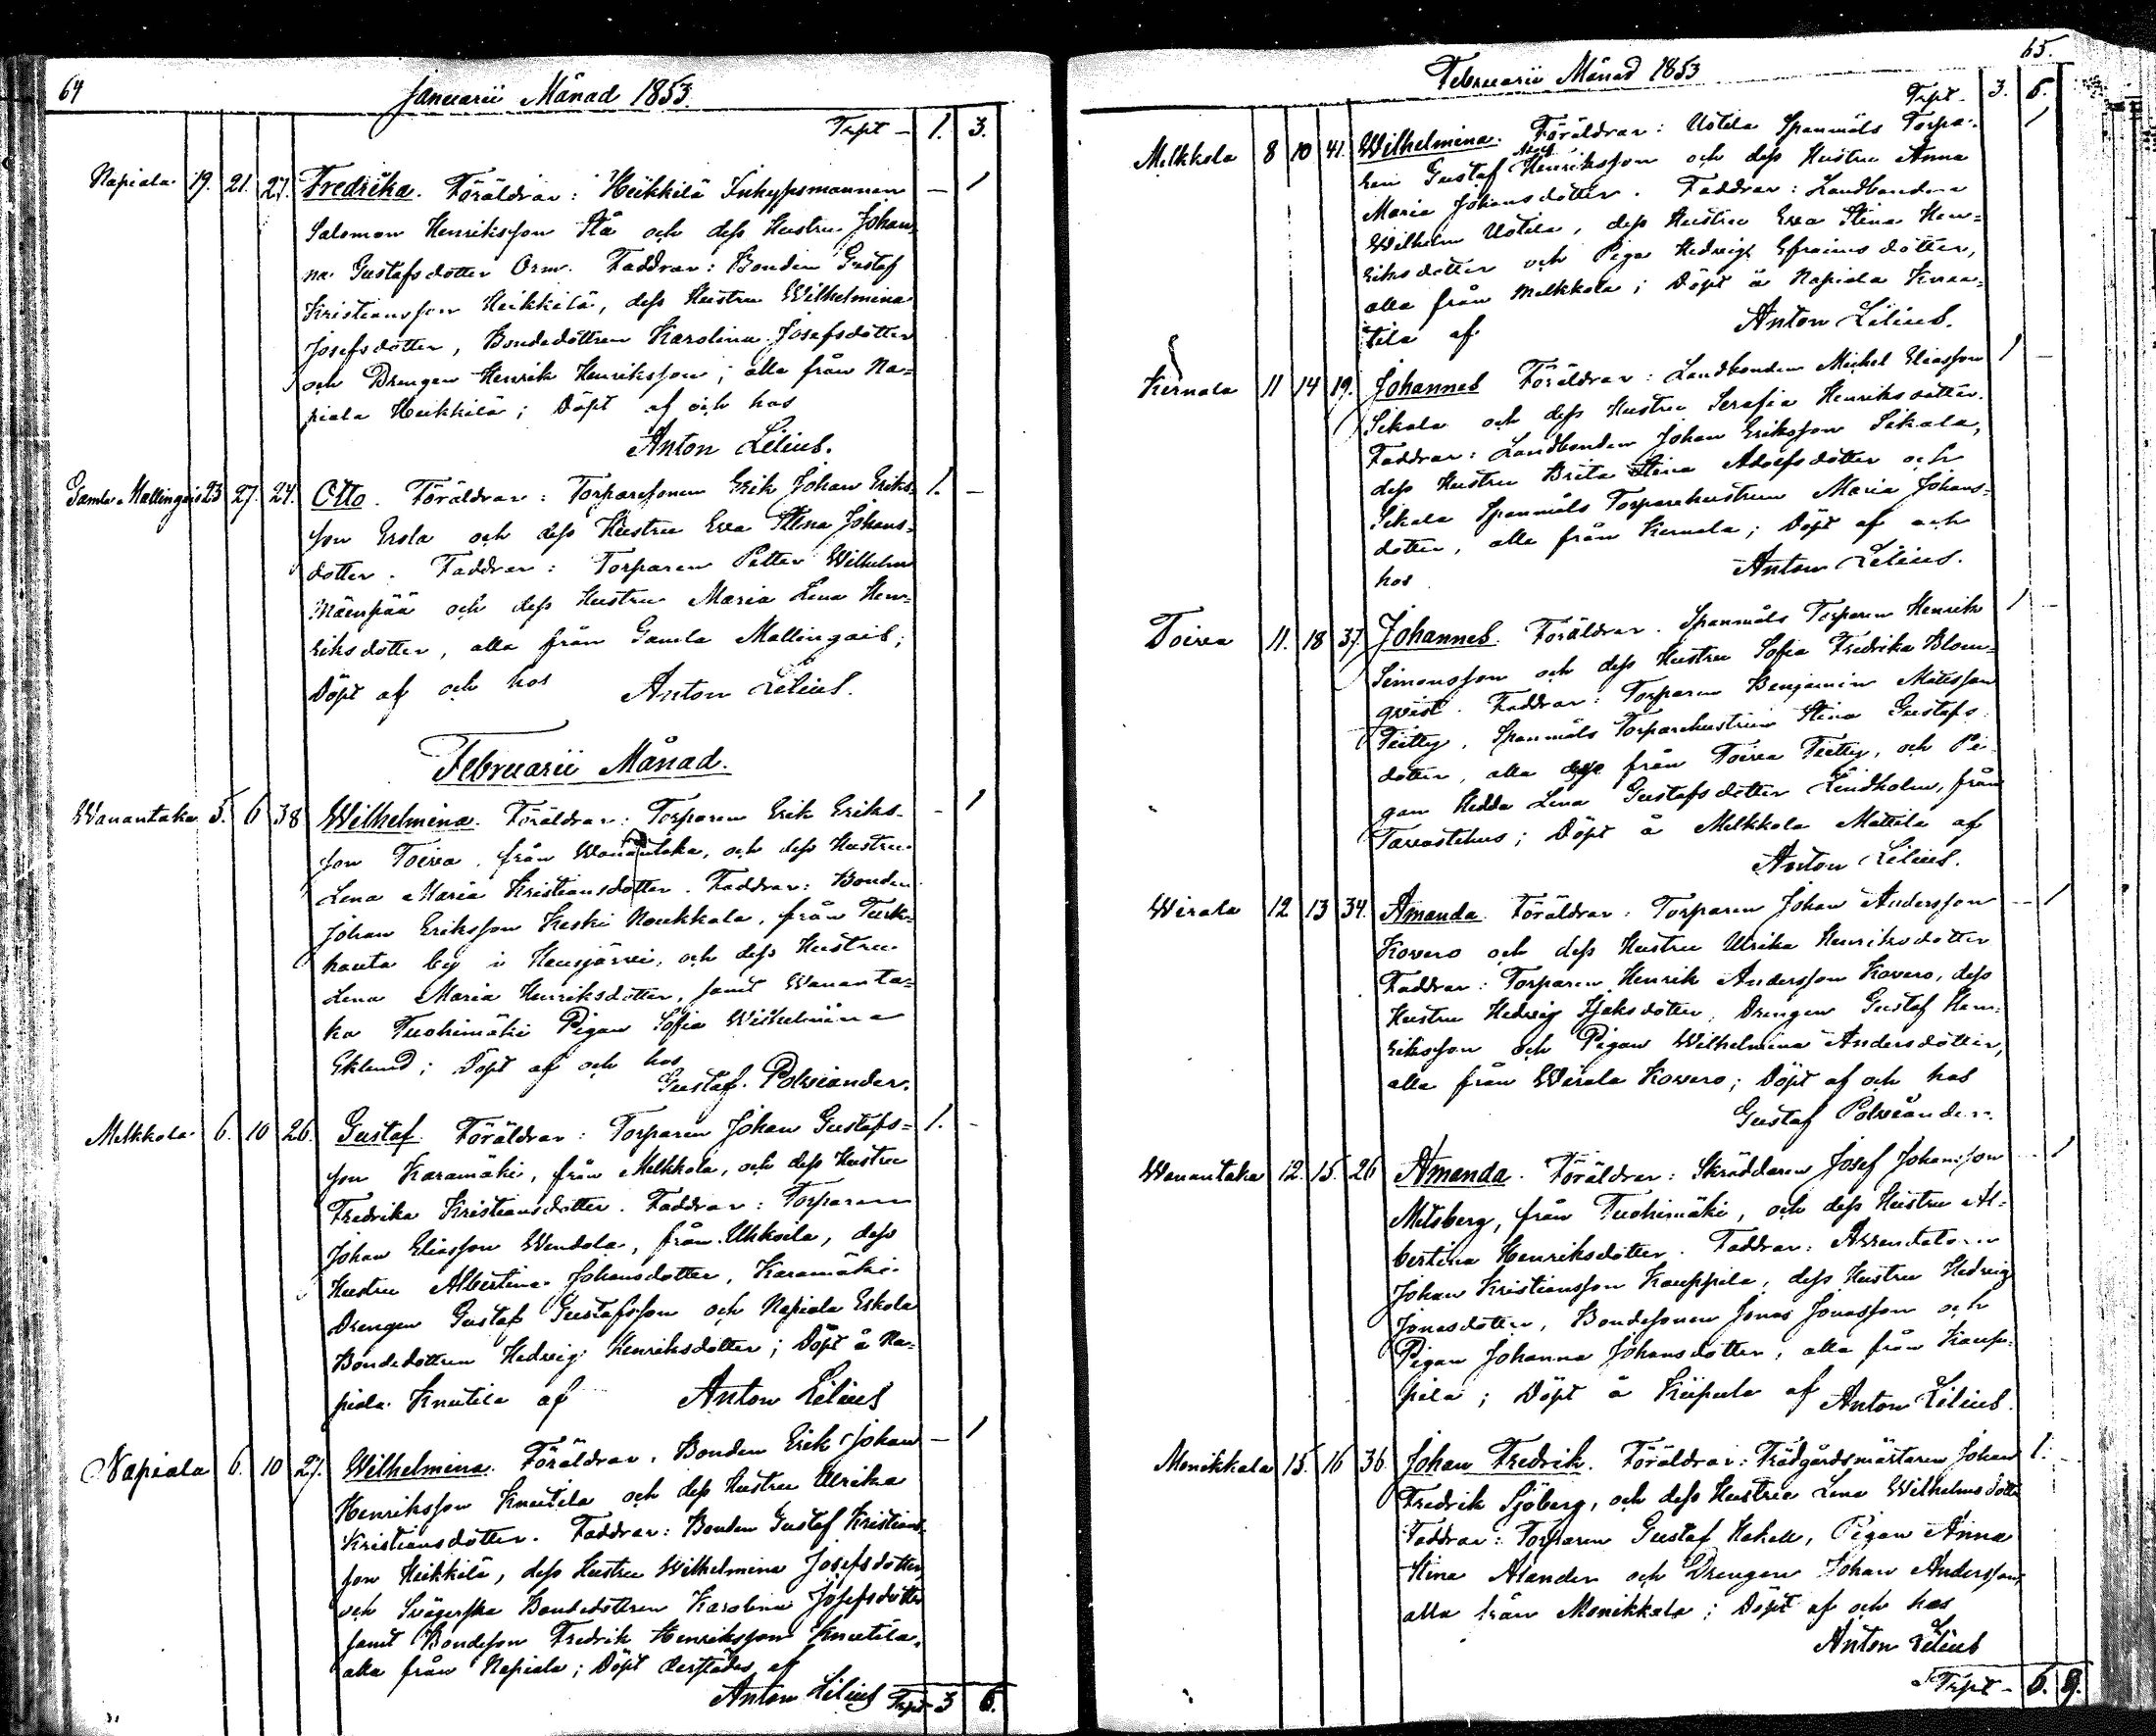 64
Januarii Månad 1853.
Trpt — 1. 3.
Napiala 19. 21. 27. Fredrika. Föräldrar: Heikkilä Inhysesmannen — 1
Salomon Henriksson Stå och dess Hustru Johan-
na Gustafsdotter Orm. Faddrar: Bonden Gustaf
Kristiansson Heikkilä, dess Hustru Wilhelmina
Josefsdotter, Bondedottren Karolina Josefsdotter
och Drengen Henrik Henriksson; alla från Na=
piala Heikkilä; Döpt af och hos
Anton Lilius.
Gamla Mallingais 23 27. 24. Otto. Föräldrar: Torparesonen Erik Johan Eriks= 1. —
son Erola och dess Hustru Eva Stina Johans=
dotter. Faddrar: Torparen Petter Wilhelm
Mäenpää och dess Hustru Maria Lena Hen=
riksdotter, alla från Gamla Mallingais;
Döpt af och hos Anton Lilius.
Februarii Månad.
Wanantaka 5. 6 38 Wilhelmina. Föräldrar: Torparen Erik Eriks- — 1
son Toivea, från Wanantaka, och dess Hustru
Lena Maria Kristiansdotter. Faddrar: Bonden
Johan Eriksson Keski Noukkala, från Turk=
hauta by i Hausjärvi, och dess Hustru
Lena Maria Henriksdotter, samt Wananta=
ka Tuohimäki Pigan Sofia Wilhelmina
Eklund; Döpt af och hos
Gustaf Polviander.
Melkkola 6. 10 26. Gustaf. Föräldrar: Torparen Johan Gustafs= 1. —
son Karamäki, från Melkkola, och dess Hustru
Fredrika Kristiansdotter. Faddrar: Torparen
Johan Eliasson Wendola, från Uhkoila, dess
Hustru Albertina Johansdotter, Karamäki
Drengen Gustaf Gustafsson och Napiala Eskola
Bondedottren Hedvig Henriksdotter; Döpt å Na=
piala Knutila af Anton Lilius
Napiala 6. 10 27. Wilhelmina. Föräldrar: Bonden Erik Johan — 1
Henriksson Knutila och dess Hustru Ulrika
Kristiansdotter. Faddrar: Bonden Gustaf Kristians-
son Heikkilä, dess Hustru Wilhelmina Josefsdotter,
och Svägerska Bondedottren Karolina Josefsdotter
samt Bondeson Fredrik Henriksson Knutila,
alla från Napiala; Döpt derstädes af
Anton Lilius Trpt 3 6.
Februarii Månad 1853
65.
Trpt — 3. 6.
Melkkola 8 10 41. Wilhelmina. Föräldrar: Uotila Spanmåls Torpa= 1
ren Gustaf Henriksson och dess Hustru Anna
Maria Johansdotter. Faddrar: Landbonden
Wilhelm Uotila, dess Hustru Eva Stina Hen=
riksdotter och Piga Hedvig Efraimsdotter,
alla från Melkkola; Döpt å Napiala Knuu=
tila af Anton Lilius.
Kernala 11 14 19. Johannes. Föräldrar: Landbonden Michel Eliasson 1 —
Sikala och dess Hustru Serafia Henriksdotter.
Faddrar: Landbonden Johan Eriksson Sikala,
dess Hustru Brita Stina Adolfsdotter och
Sikala Spanmåls Torparehustrun Maria Johans=
dotter, alla från Kernala; Döpt af och
hos Anton Lilius.
Toivea 11. 18 37. Johannes. Föräldrar. Spanmåls Torparen Henrik 1 —
Simonsson och dess Hustru Sofia Fredrika Blom=
qvist. Faddrar: Torparen Benjamin Matsson
Teitty, Spanmåls Torparehustrun Stina Gustafs
dotter, alla från Toivea Teitty, och Pi
gan Hedda Lena Gustafsdotter Lindholm, från
Tavastehus; Döpt å Melkkola Mattila af
Anton Lilius.
Wirala 12 13 34. Amanda. Föräldrar: Torparen Johan Andersson — 1
Kovero och dess Hustru Ulrika Henriksdotter
Faddrar: Torparen Henrik Andersson Kovero, dess
Hustru Hedvig Isaksdotter, Drengen Gustaf Hen=
riksson och Pigan Wilhelmina Andersdotter,
alla från Wirala Kovero; Döpt af och hos
Gustaf Polviander.
Wanantaka 12. 15. 26 Amanda. Föräldrar: Skräddaren Josef Johansson — 1
Metsberg, från Tuohimäki, och dess Hustru Al=
bertina Henriksdotter. Faddrar: Arrendatorn
Johan Kristiansson Kauppila, dess Hustru Hedvig
Jonasdotter, Bondesonen Jonas Jonasson och
Pigan Johanna Johansdotter, alla från Kaup=
pila; Döpt å Kiipula af Anton Lilius.
Monikkala 15. 16 36. Johan Fredrik. Föräldrar: Trädgårdsmästaren Johan 1. —
Fredrik Sjöberg, och dess Hustru Lena Wilhelmsdotter
Faddrar: Torparen Gustaf Hakell, Pigan Anna
Stina Alander och Drengen Johan Andersson,
alla från Monikkala; Döpt af och hos
Anton Lilius
Trpt — 6. 9.